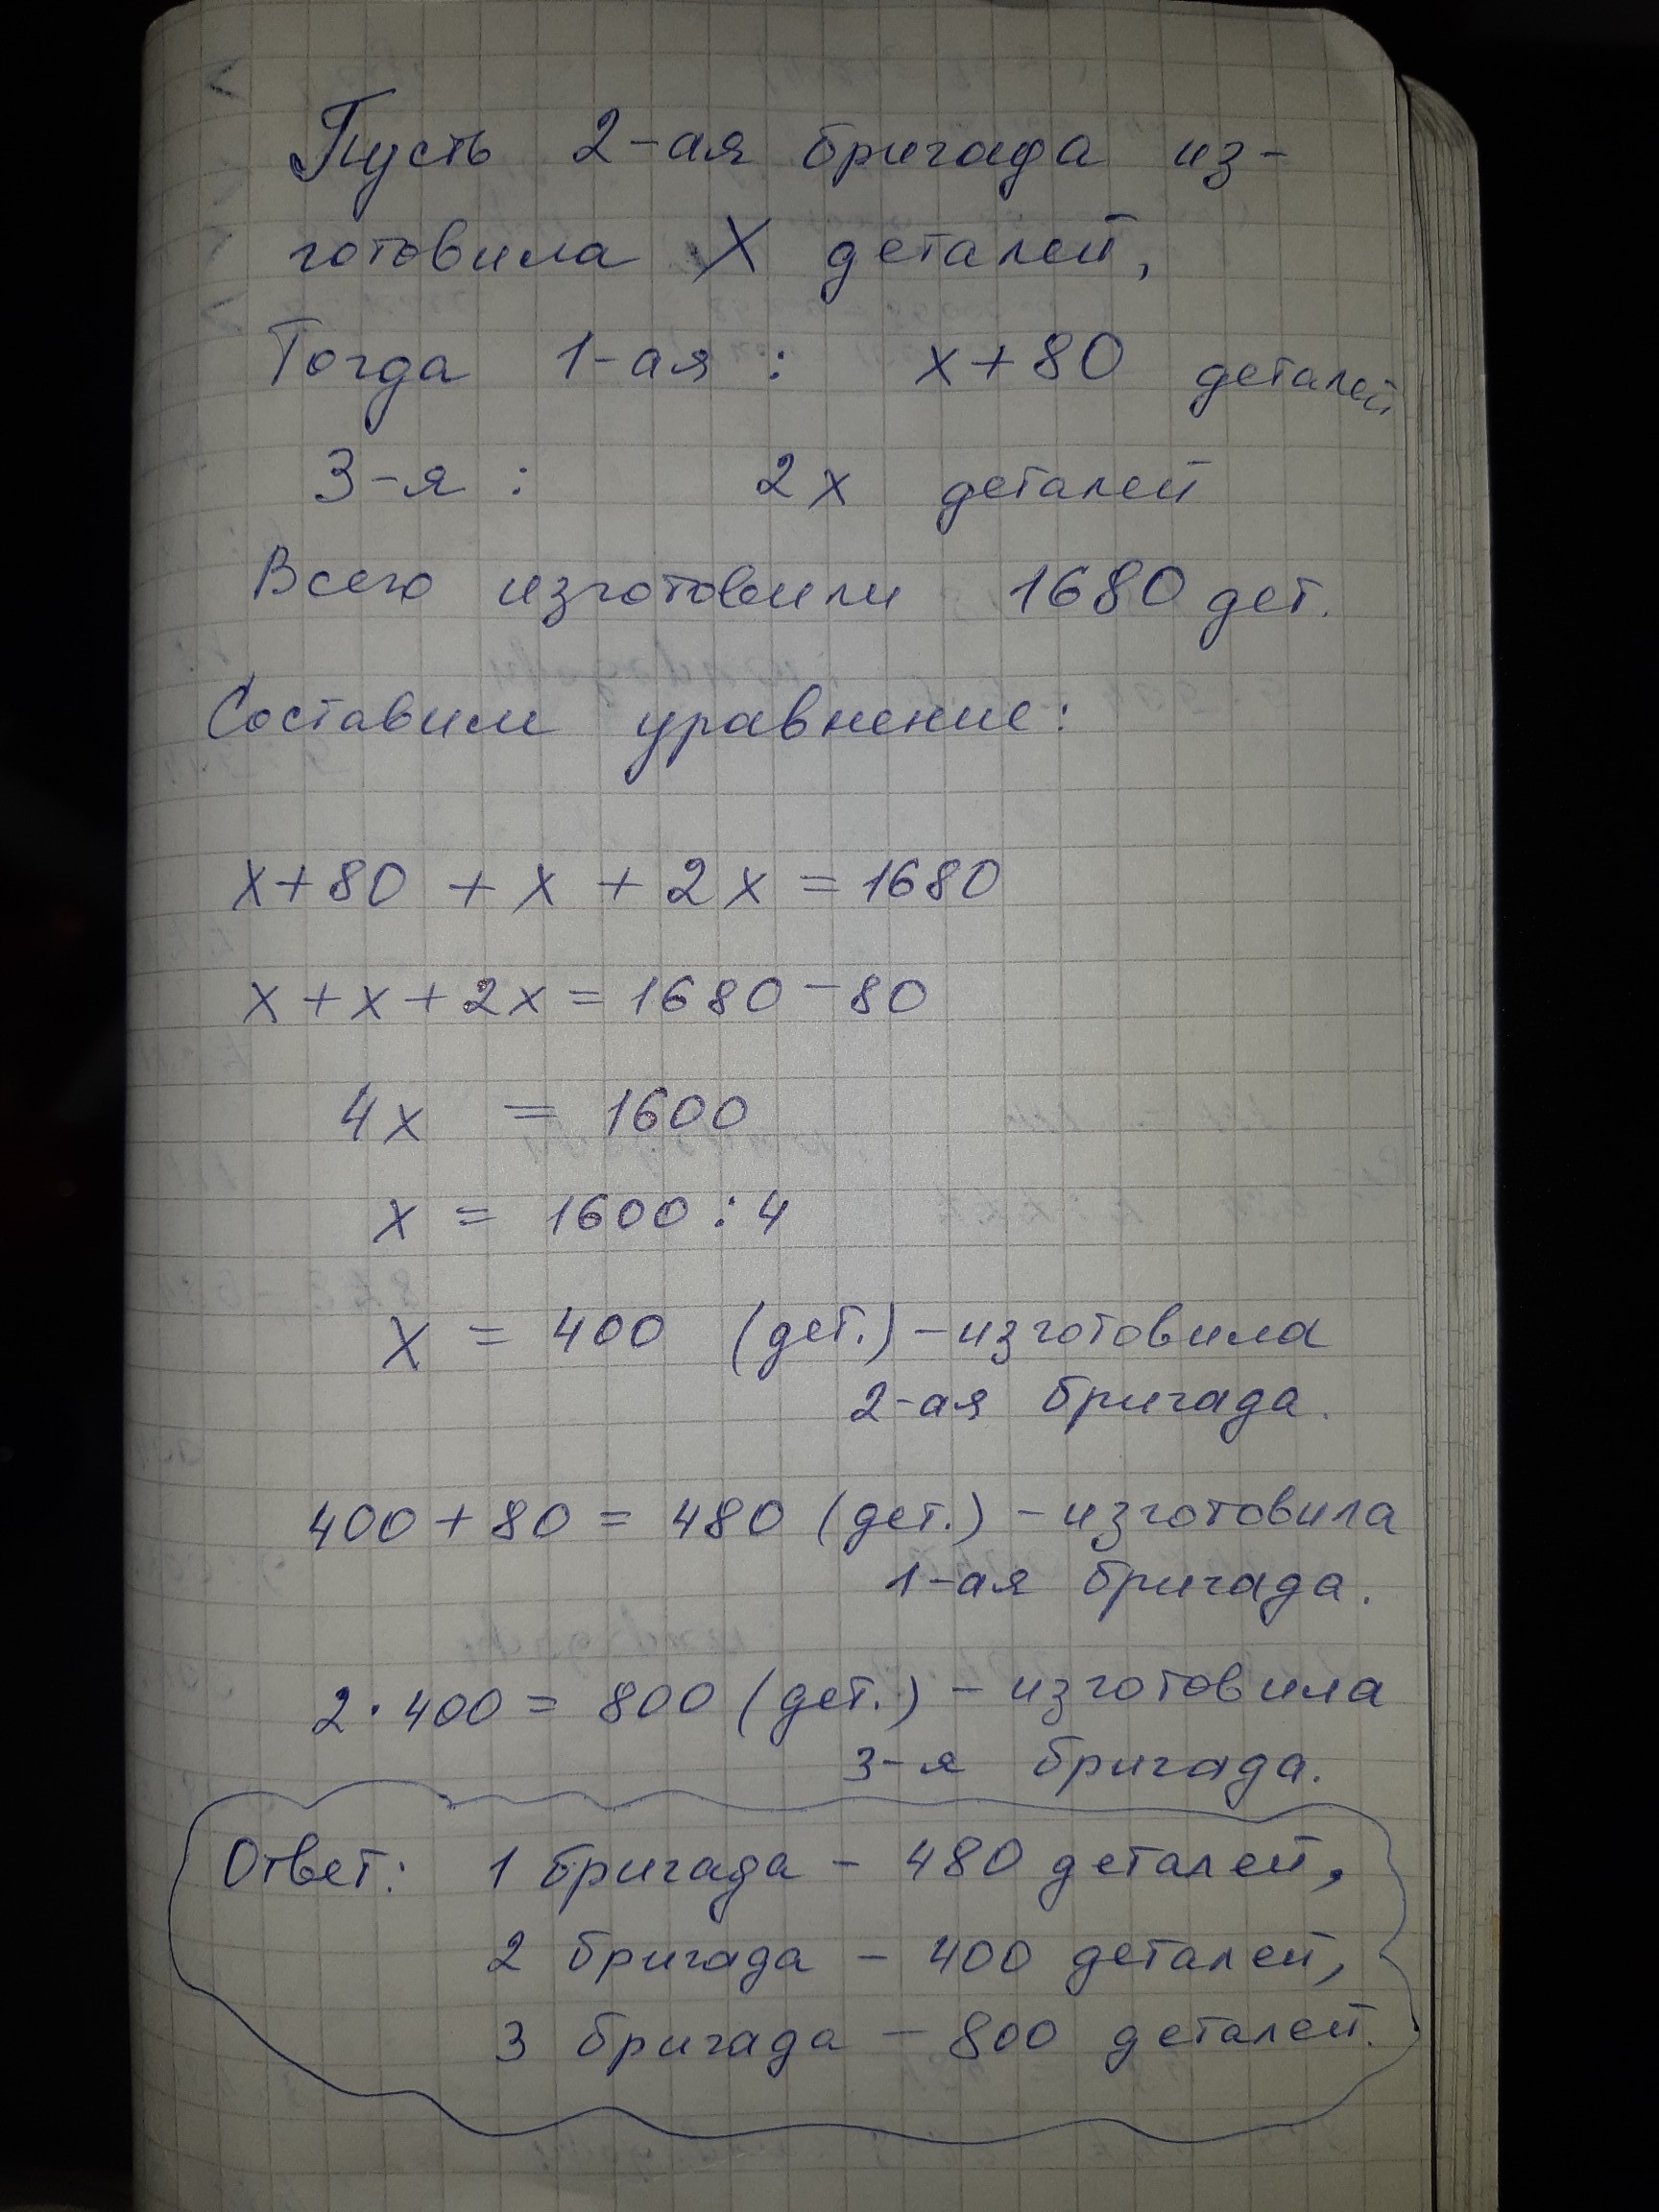 Пусть 2-ая бригада из-
готовила X деталей,
Тогда 1-ая : x+80 деталей
3-я : 2x деталей
Всего изготовили 1680 дет.
Составим уравнение:
x+80 + x + 2x = 1680
x + x + 2x = 1680 - 80
4x = 1600
x = 1600 : 4
x = 400 (дет.) - изготовила
2-ая бригада.
400 + 80 = 480 (дет.) - изготовила
1-ая бригада.
2 · 400 = 800 (дет.) - изготовила
3-я бригада.
Ответ: 1 бригада - 480 деталей,
2 бригада - 400 деталей,
3 бригада - 800 деталей.